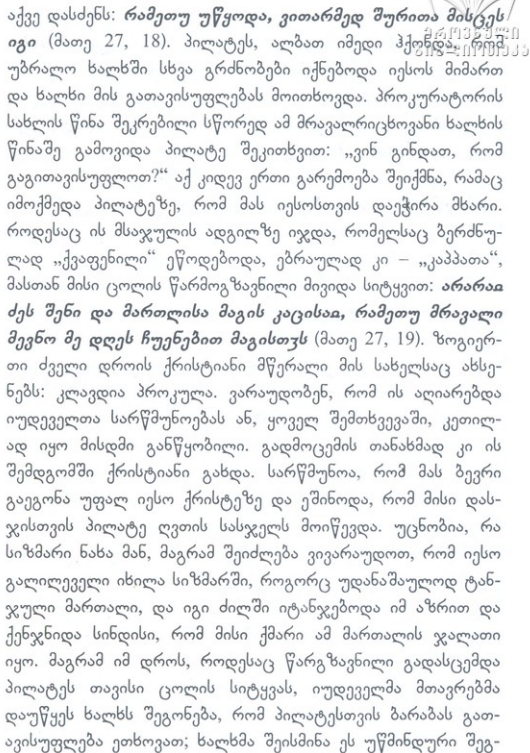 აქვე დასძენს: რამეთუ უწყოდა, ვითარმედ შურითა მისცეს
იგი (მათე 27, 18). პილატეს, ალბათ იმედი ჰქონდა, რომ
უბრალო ხალხში სხვა გრძნობები იქნებოდა იესოს მიმართ
და ხალხი მის გათავისუფლებას მოითხოვდა. პროკურატორის
სახლის წინა შეკრებილი სწორედ ამ მრავალრიცხოვანი ხალხის
წინაშე გამოვიდა პილატე შეკითხვით: „ვინ გინდათ, რომ
გაგითავისუფლოთ?“ აქ კიდევ ერთი გარემოება შეიქმნა, რამაც
იმოქმედა პილატეზე, რომ მას იესოსთვის დაეჭირა მხარი.
როდესაც ის მსაჯულის ადგილზე იჯდა, რომელსაც ბერძნუ-
ლად „ქვაფენილი“ ეწოდებოდა, ებრაულად კი – „კაპპათა“,
მასთან მისი ცოლის წარმოგზავნილი მივიდა სიტყვით: არარაჲ
ძეს შენი და მართლისა მაგის კაცისაჲ, რამეთუ მრავალი
მევნო მე დღეს ჩუენებით მაგისთჳს (მათე 27, 19). ზოგიერ-
თი ძველი დროის ქრისტიანი მწერალი მის სახელსაც ახსე-
ნებს: კლავდია პროკულა. ვარაუდობენ, რომ ის აღიარებდა
იუდეველთა სარწმუნოებას ან, ყოველ შემთხვევაში, კეთილ-
ად იყო მისდმი განწყობილი. გადმოცემის თანახმად კი ის
შემდგომში ქრისტიანი გახდა. სარწმუნოა, რომ მას ბევრი
გაეგონა უფალ იესო ქრისტეზე და ეშინოდა, რომ მისი დას-
ჯისთვის პილატე ღვთის სასჯელს მოიწევდა. უცნობია, რა
სიზმარი ნახა მან, მაგრამ შეიძლება ვივარაუდოთ, რომ იესო
გალილეველი იხილა სიზმარში, როგორც უდანაშაულოდ ტან-
ჯული მართალი, და იგი ძილში იტანჯებოდა იმ აზრით და
ქენჯნიდა სინდისი, რომ მისი ქმარი ამ მართალის ჯალათი
იყო. მაგრამ იმ დროს, როდესაც წარგზავნილი გადასცემდა
პილატეს თავისი ცოლის სიტყვას, იუდეველმა მთავრებმა
დაუწყეს ხალხს შეგონება, რომ პილატესთვის ბარაბას გათ-
ავისუფლება ეთხოვათ; ხალხმა შეისმინა ეს უწმინდური შეგ-